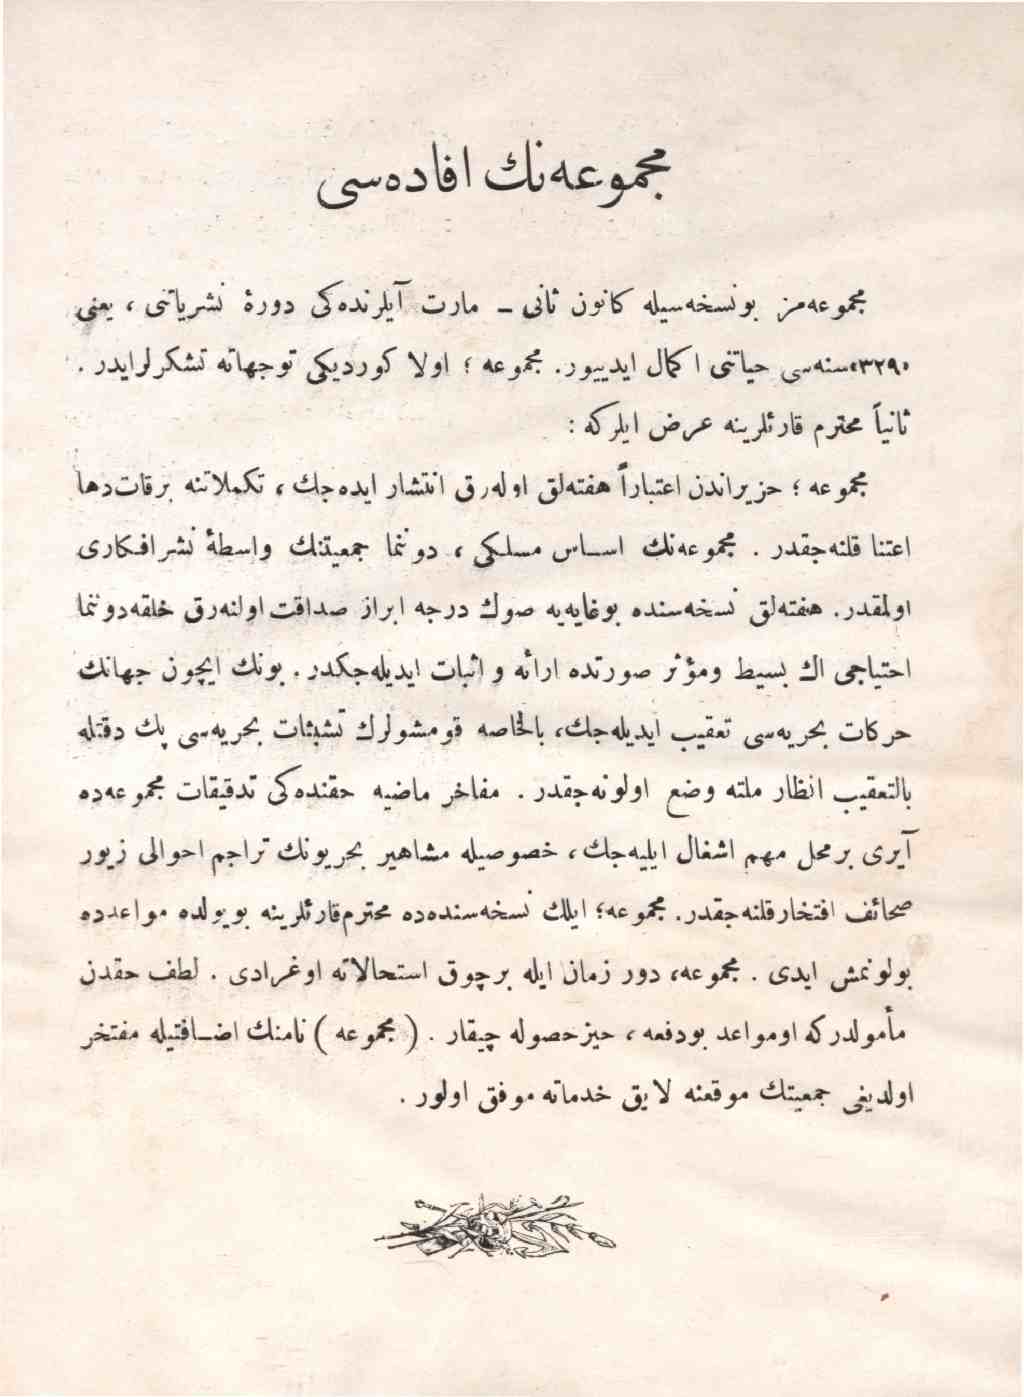 مجموعه‌نك افاده‌سی
مجموعه‌مز بونسخه‌سیله كانون ثانی ـ مارت آیلرنده‌كی دورۀ نشریاتنی ، یعنی
«٣٢٩»سنه‌سی حیاتنی اكمال ایدییور. مجموعه ؛ اولا كوردیكی توجهاته تشكرلرایدر .
ثانیاً محترم قارئلرینه عرض ایلركه :
مجموعه ؛ حزیراندن اعتباراً هفته‌لق اوله‌رق انتشار ایده‌جك ، تكملاتنه برقات‌دها
اعتنا قلنه‌جقدر . مجموعه‌نك اساس مسلكی ، دوننما جمعیتنك واسطۀ نشرافكاری
اولمقدر. هفته‌لق نسخه‌سنده بوغایه‌یه صوك درجه ابراز صداقت اولنه‌رق خلقه‌دوننما
احتیاجی اك بسیط ومؤثر صورتده ارائه و اثبات ایدیله‌جكدر . بونك ایچون جهانك
حركات بحریه‌سی تعقیب ایدیله‌جك، بالخاصه قومشولرك تشبثات بحریه‌سی پك دقتله
بالتعقیب انظار ملته وضع اولونه‌جقدر . مفاخر ماضیه حقنده‌كی تدقیقات مجموعه‌ده
آیری برمحل مهم اشغال ایلیه‌جك ، خصوصیله مشاهیر بحریونك تراجم احوالی زیور
صحائف افتخارقلنه‌جقدر. مجموعه؛ ایلك نسخه‌سنده‌ده محترم‌قارئلرینه بویولده مواعدده
بولونمش ایدی . مجموعه، دور زمان ایله برچوق استحالاته اوغرادی . لطف حقدن
مأمولدركه اومواعد بودفعه ، حیزحصوله چیقار . ( مجموعه ) نامنك اضافتیله مفتخر
اولدیغی جمعیتك موقعنه لایق خدماته موفق اولور .